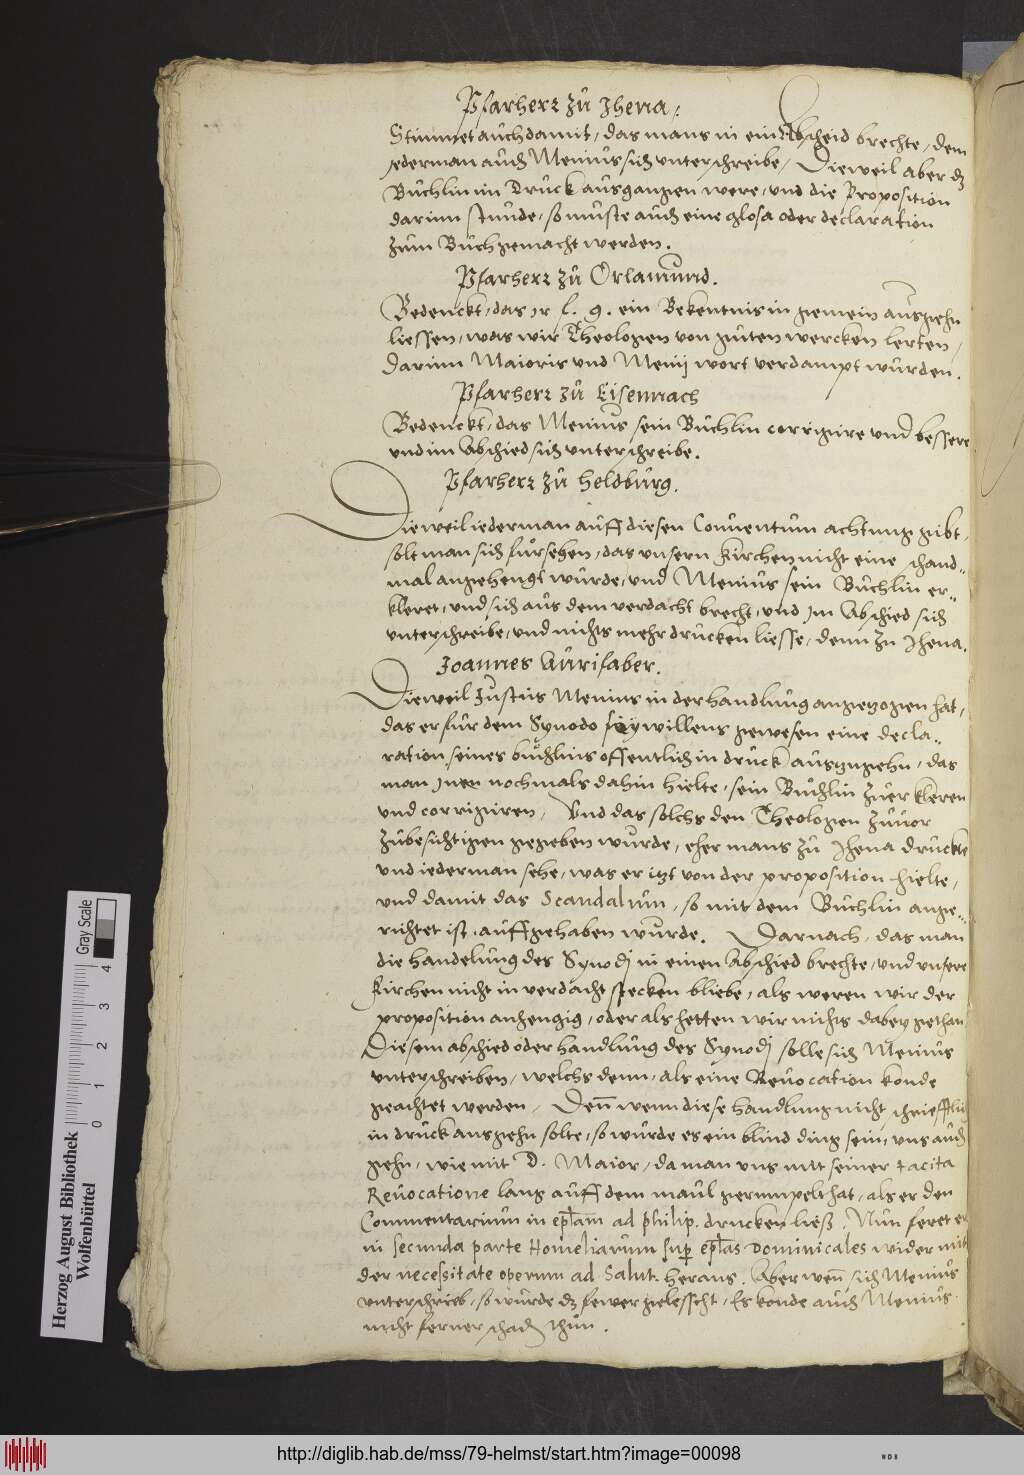 Pfarherr zů Jhena.
Stimmet auch damit, das mans in ein Abscheid brechte, dem
iederman auch Menius sich unterschreibe, Dieweil aber dz
Büchlin im Druck ausgangen were, und die Proposition
darinn stunde, so müste auch eine glosa oder declaration
zum Buch gemacht werden.
Pfarherr zů Orlamund.
Bedenckt, das ir f. g. ein Bekentnis in gemein ausgehn
liessen, was wir Theologen von guten wercken lerten,
Darinn Maioris und Menij wort verdampt würden.
Pfarherr zů Eisennach
Bedenckt, das Menius sein Büchlin corrigire und bessere
und im Abschied sich unterschreibe.
Pfarherr zů Heldburg.
Dieweil iederman auff diesen Conventum achtung gibt,
solt man sich fürsehen, das unsern Kirchen nicht eine schand-
mal angehengt würde, und Menius sein Büchlin er-
kleret, und sich aus dem verdacht brecht, und im Abschied sich
unterschreibe, und nichts mehr drucken liesse, denn zu Jhena.
Joannes Aurifaber.
Dieweil Justus Menius in der handlung angezogen hat,
das er für dem Synodo willens gewesen eine decla-
ration seines büchlins offentlich in druck auszugehn, das
man inen nochmals dahin hielte, sein Büchlin zuerkleren
und corrigiren, Und das solchs den Theologen zuvor
zubesichtigen gegeben wurde, eher mans zů Jhena druckte
und iederman sehe, was er itzt von der proposition hielte,
und damit das Scandalum, so mit dem Büchlin ange-
richtet ist, auffgehaben wurde. Darnach, das man
die handelung des Synodj in einen Abschied brechte, und unsere
Kirchen nicht in verdacht stecken bliebe, als weren wir der
proposition anhengig, oder als hetten wir nichts dabey gethan
Diesem abschied oder handlung des Synodj solle sich Menius
unterschreiben, welchs denn, als eine Revocation konde
geachtet werden. Den̅ wenn diese handlung nicht schriefftlich
in druck ausgehn solte, so würde es ein blind ding sein, uns auch
gehn, wie mit D. Maior, da man uns mit seiner tacita
Revocatione lang auff dem maul gerumpelt hat, als er den
Commentarium in epl̅am ad philip. drucken ließ. Nun feret er
in secunda parte Homeliarum sup epl̅as Dominicales wider mit
der necessitate operum ad Salut. heraus. Aber wen̅ sich Menius
unterschrieb, so würde dz fewer gelesscht, Es konde auch Menius
nicht ferner schaden thun.
Herzog August Bibliothek
Wolfenbüttel
0 1 2 3 4
Gray Scale
http://diglib.hab.de/mss/79-helmst/start.htm?image=00098